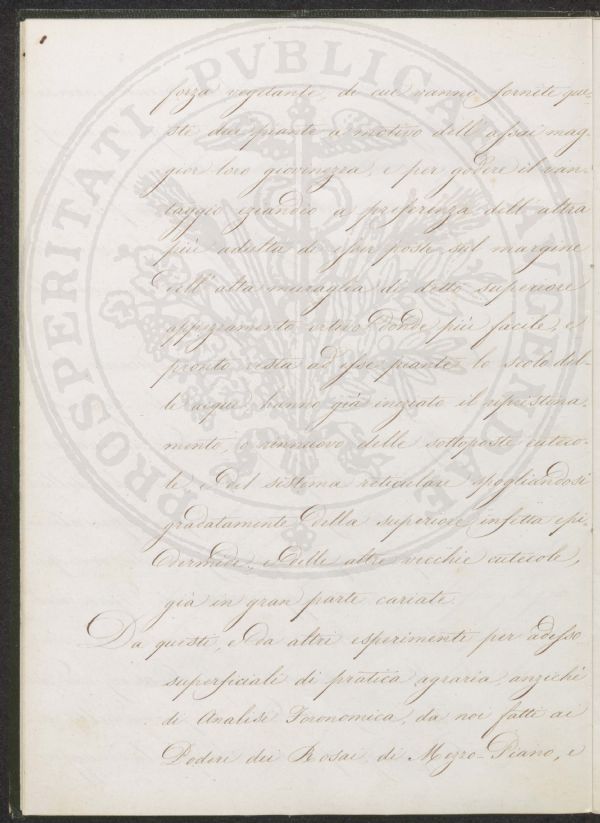 PROSPERITATI PVBLICAE AVGENDAE
forza vegetante, di cui vanno fornite que-
ste due piante a motivo dell'assai mag-
gior loro giovinezza, e per godere il van-
taggio eziandio a preferenza dell'altra
più adulta di esser poste sul margine
dell'alta muraglia di detto superiore
appezzamento ortivo donde più facile, e
pronto resta ad esse piante lo scolo del-
le acque, hanno già iniziato il ripristina-
mento, o rinnuovo delle sottoposte cutico-
le e del sistema reticolare spogliandosi
gradatamente della superiore infetta epi-
dermide, e delle altre vecchie cuticole,
già in gran parte cariate.
Da questi, e da altri esperimenti per adesso
superficiali di pratica agraria, anzichè
di Analisi Foronomica, da noi fatti ai
Poderi dei Rosai, di Mezzo-Piano, e